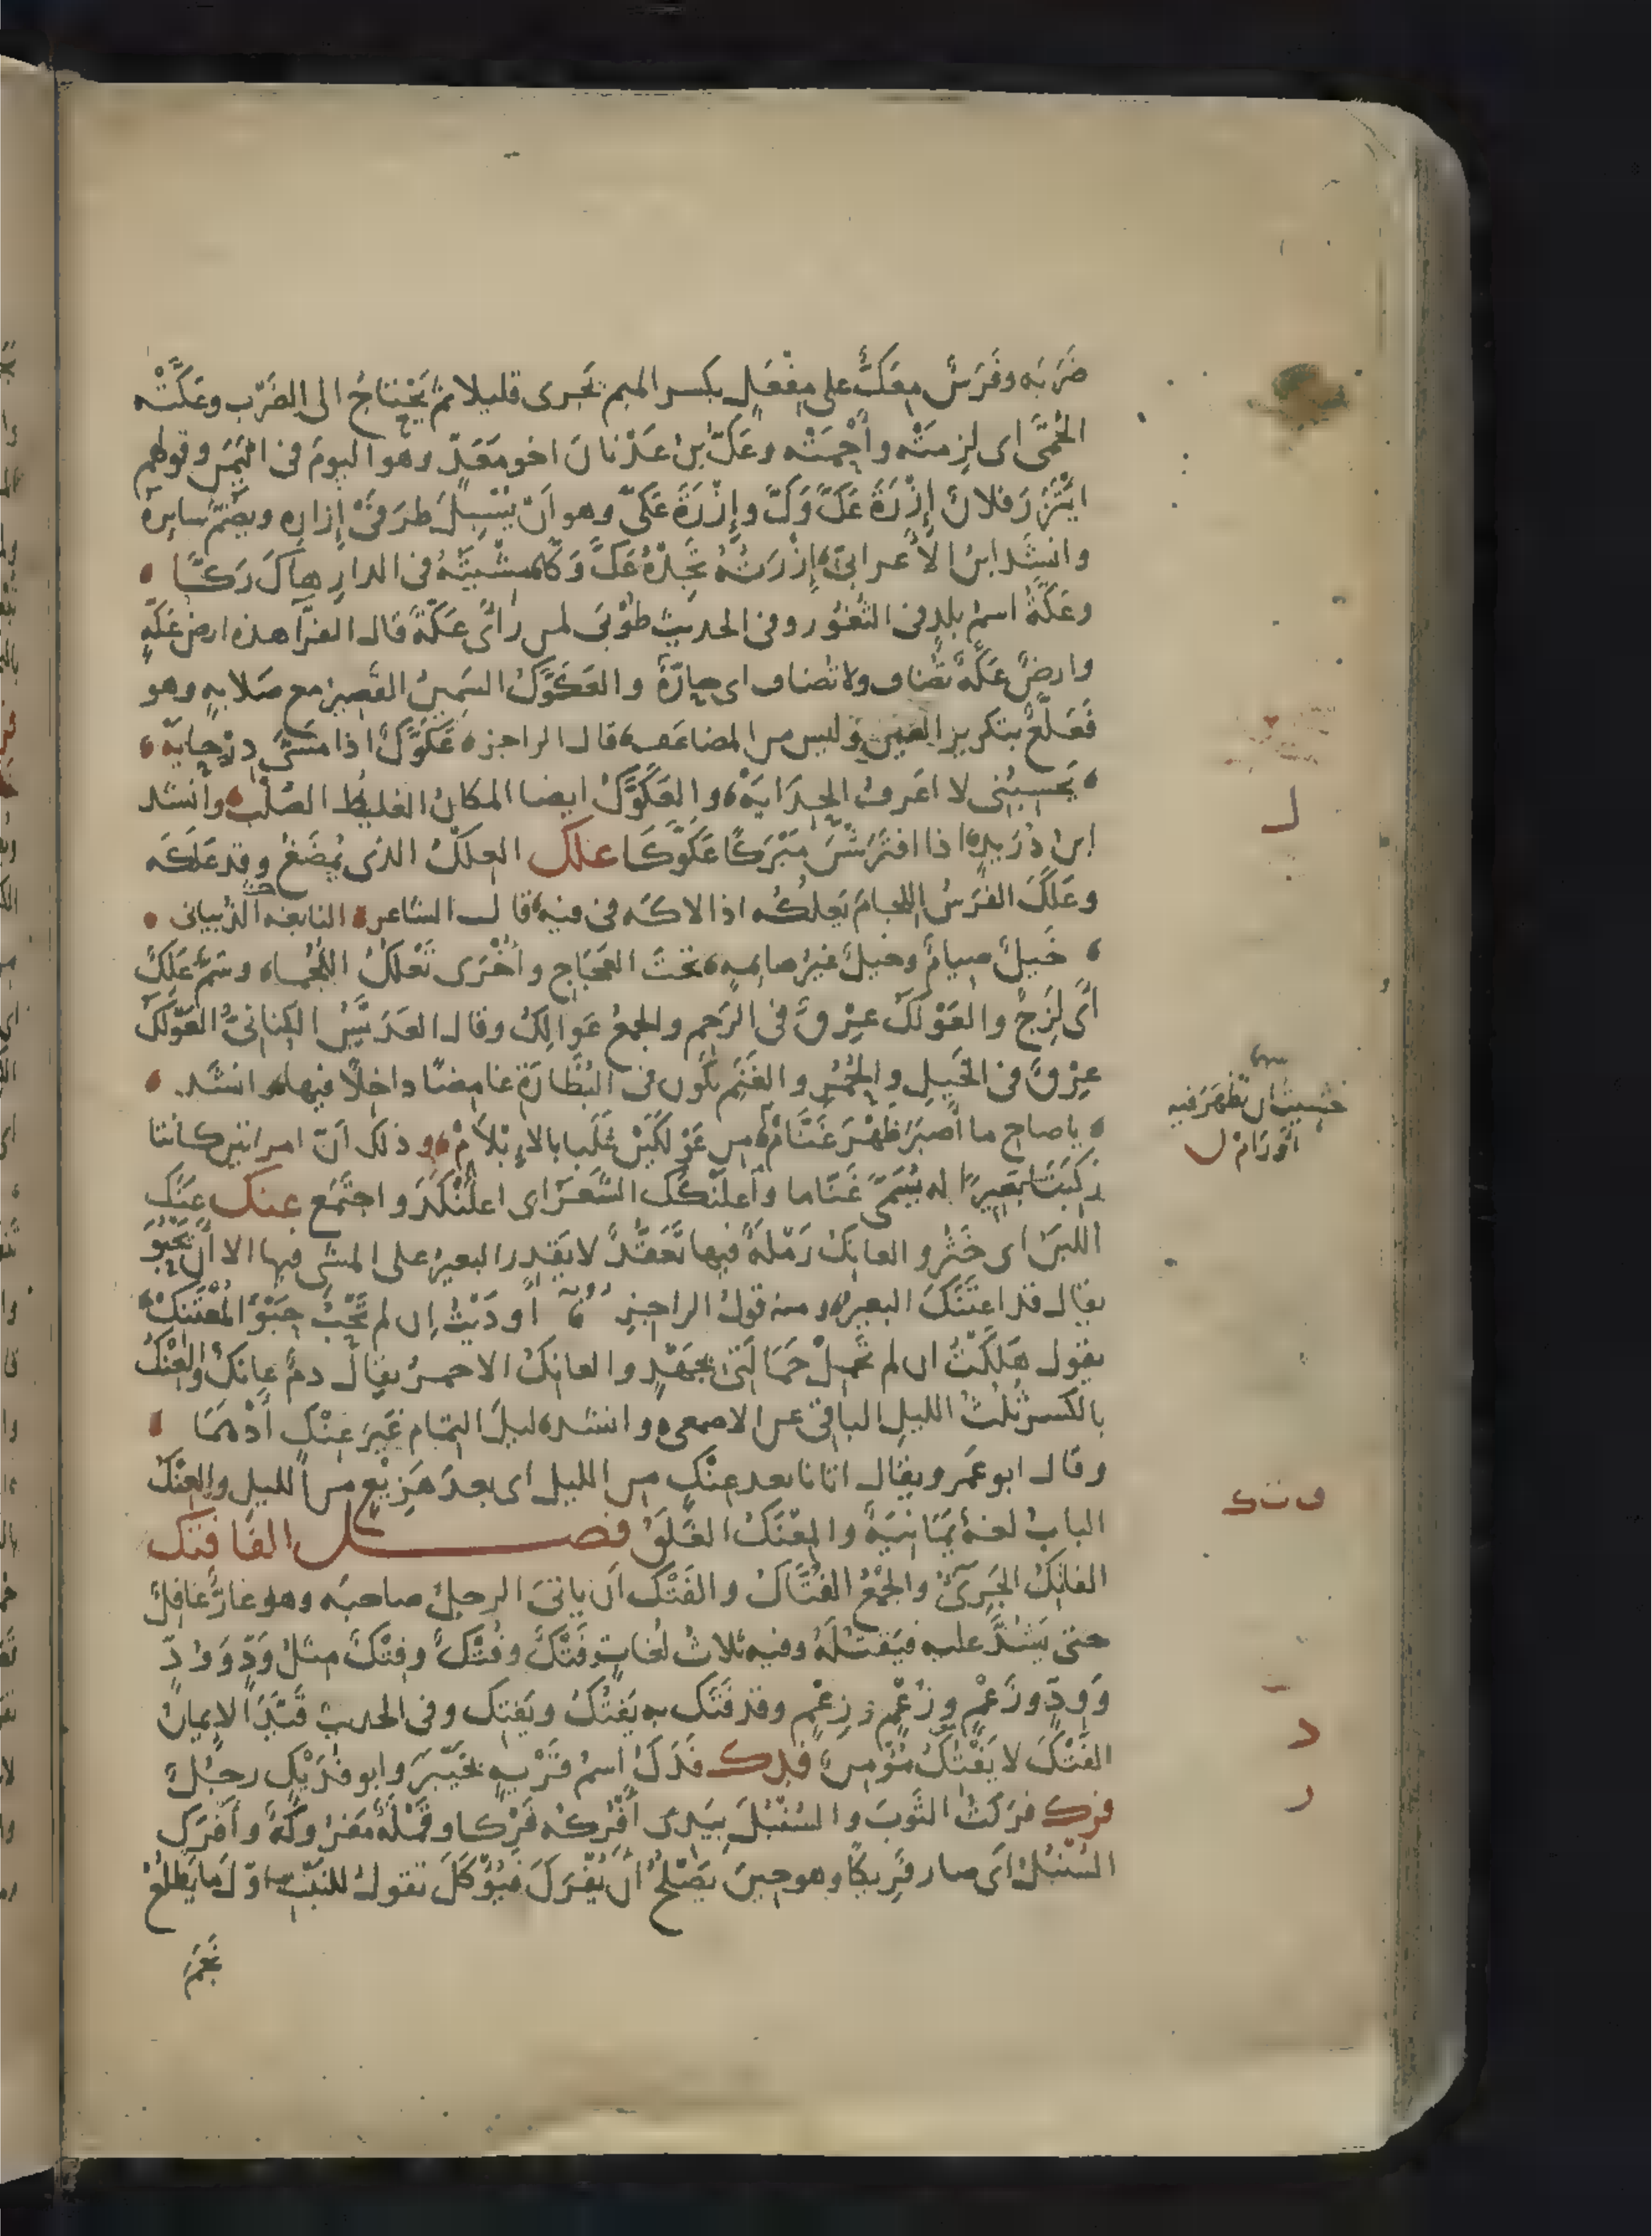 ضَرَبَه وفَرَسٌ مِعَكٌّ على مِفْعَلٍ بكسر الميم تجرى قليلا ثم يَحْتاجُ الى الضَرْب وعَكَّتْه
الحُمَّى اى لزِمَتْه وأَحْمَتْه وعَكُّ بنُ عَدْنانَ اخو مَعَدٍّ وهو اليومَ فى اليَمَن وقولهم
ايْتَزَرَ فلانٌ إِزْرَةَ عَكَّ وَكَّ وإِزْرَةَ عَكَّى وهو أَنْ يُسْبِلَ طرَفَىْ إِزارِه ويَضُمَّ سايِرَه
وانشَد ابنُ الاعرابىّ إِزْرَتُهُ تَجِدْهُ عَكَّ وَكَّا مِشْيَتُهُ فى الدارِ هاكَ رَكَّا
وعَكَّةُ اسمُ بلدٍ فى الثُغُور وفى الحديث طُوْبَى لمن رأَى عَكَّةَ قال الفرّاء هذه ارضُ عَكَّةٍ
وارضٌ عَكَّةٌ تُضاف ولا تُضاف اى حارّةٌ والعَكَوَّكُ السَمِينُ القَصِيرُ مع صَلابةٍ وهو
فَعَلَّعٌ بتكرير العين وليس من المضاعَف قال الراجز عَكَوَّكٌ اذا مشَى دِرْحايَهْ
يَحسِبُنى لا اعَرِفُ الحِدَايَهْ والعَكَوَّكُ ايضا المكانُ الغليظُ الصُلْبُ وانشد
ابنُ دُرَيدٍ اذا افتَرَشْنَ مَبْرَكًا عَكَوَّكَا علك العِلْكُ الذى يُمضَغُ وقد عَلَكَه
وعَلَكَ الفرَسُ اللجامَ يَعلُكُه اذا لاكَه فى فيه قال الشاعر النابغه الذبيانى
خَيلٌ صيامٌ وخيلٌ غيرُ صايمةٍ تحتَ العَجَاجِ وأُخْرَى تَعْلُكُ اللُجُما وشىءٌ عَلِكٌ
أى لَزِجٌ والعَوْلَكُ عِرْقٌ فى الرَحِم والجمعُ عَوالِكُ وقال العَدَبَّسُ الكِنانىُّ العَوْلَكُ
عِرْقٌ فى الخَيلِ والحُمُرِ والغَنَم يكون فى البُظَارَةِ غامِضًا داخِلًا فيها وانشد
يا صاحِ ما أَصبَرَ ظَهْرَ غَنَّامْ
خَشِيتُ ان تَظهَرَ فيه
أَوْرَامْ
من عَوْلَكَيْنِ غلَبا بالإبْلَامْ وذلك أنّ امراتين كانتا
رَكِبَتَا بَعِيرًا له يُسَمَّى غَنّاما واعلَنْكَكَ الشَعَرُ اى اعلَنْكَدَ واجتَمَع عنك عَنَكَ
اللبَنُ اى خَثُر والعانِكُ رَمْلةٌ فيها تَعَقُّدٌ لا يَقدِر البعيرُ على المشى فيها الا أَن يَحْبُوَ
يقال قد اعتَنَكَ البعيرُ ومنه قولُ الراجز أَودَيْتُ اِن لم تَحْبُ حَبْوَ المُعْتَنِكْ
يقول هَلَكْتُ ان لم تَحمِلْ حَمَالَتى بجَهْدٍ والعانِكُ الاحمرُ يقال دمٌ عانِكٌ والعِنْكُ
بالكسر ثُلُثُ الليلِ الباقى عن الاصمعى وانشد ليلَ التمام غيرَ عِنْكٍ أَدْهَمَا
وقال ابو عَمرو يقال اتانا بعد عِنْكٍ من الليل اى بعدَ هَزِيْعٍ من الليل والعِنْكُ
البابُ لغةٌ يَمَانِيَةٌ والمِعْنَكُ الغَلَقُ فصل الفا فتك
الفاتِكُ الجَرِىءُ والجَمْعُ الفُتَّاكُ والفَتْكُ أن ياتىَ الرجلُ صاحبَه وهو غارٌّ غافِلٌ
حتى يَشُدَّ عليه فيَقتُلَهُ وفيه ثلاثُ لُغاتٍ فَتْكٌ وفُتْكٌ وفِتْكٌ مِثلُ وَدٍّ وَوُدٍّ
وَوِدٍّ وزَعْمٍ وزُعْمٍ وزِعْمٍ وقد فَتَك به يَفتُكُ ويَفتِك وفى الحديث قَيَّدَ الايمانُ
الفَتْكَ لا يَفْتِكُ مُؤْمِنٌ فدك فَدَكُ اسمُ قَرْيةٍ بخَيْبَرَ وابو فُدَيْكٍ رجُلٌ
فرك فرَكتُ الثَوبَ والسُنْبُلَ بيَدى أَفْرُكُه فَرْكا وقَمْلَةٌ مَفرُوكَةٌ وأَفرَكَ
السُنْبُلُ أى صار فَرِيكًا وهو حِينَ يَصْلُحُ أَن يُفْرَكَ فيُؤْكَلَ تقول للنَبْتِ اوّلَ ما يَطلُعُ
نَجَمَ
ل
ف ت ك
د
ر